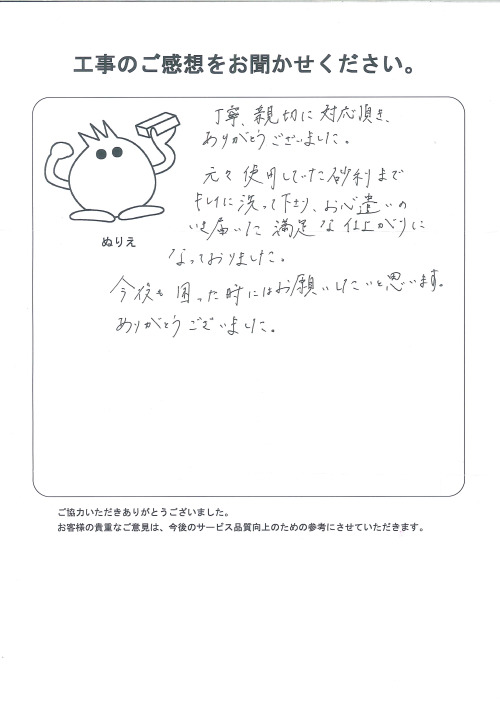 工事のご感想をお聞かせください。
丁寧、親切に対応頂き、
ありがとうございました。
元々使用していた砂利まで
キレイに洗って下さり、お心遣いの
いき届いた満足な仕上がりに
なっておりました。
今後も困った時にはお願いしたいと思います。
ありがとうございました。
ぬりえ
ご協力いただきありがとうございました。
お客様の貴重なご意見は、今後のサービス品質向上のための参考にさせていただきます。